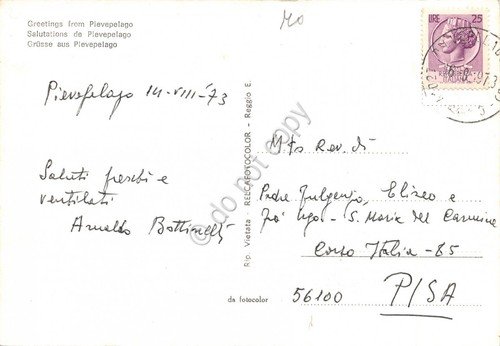 Greetings from Pievepelago
Salutations de Pievepelago
Grüsse aus Pievepelago
Pievepelago 14-VIII-73
Saluti freschi e
ventilati
Arnaldo Bottinelli
Rip. Vietata RELCAFOTOCOLOR - Reggio E.
da fotocolor
LIRE 25
Mto Rev.di
Padre Fulgenzio, Eliseo e
Frà Ugo - S. Maria del Carmine
Corso Italia - 85
56100 PISA
do not copy